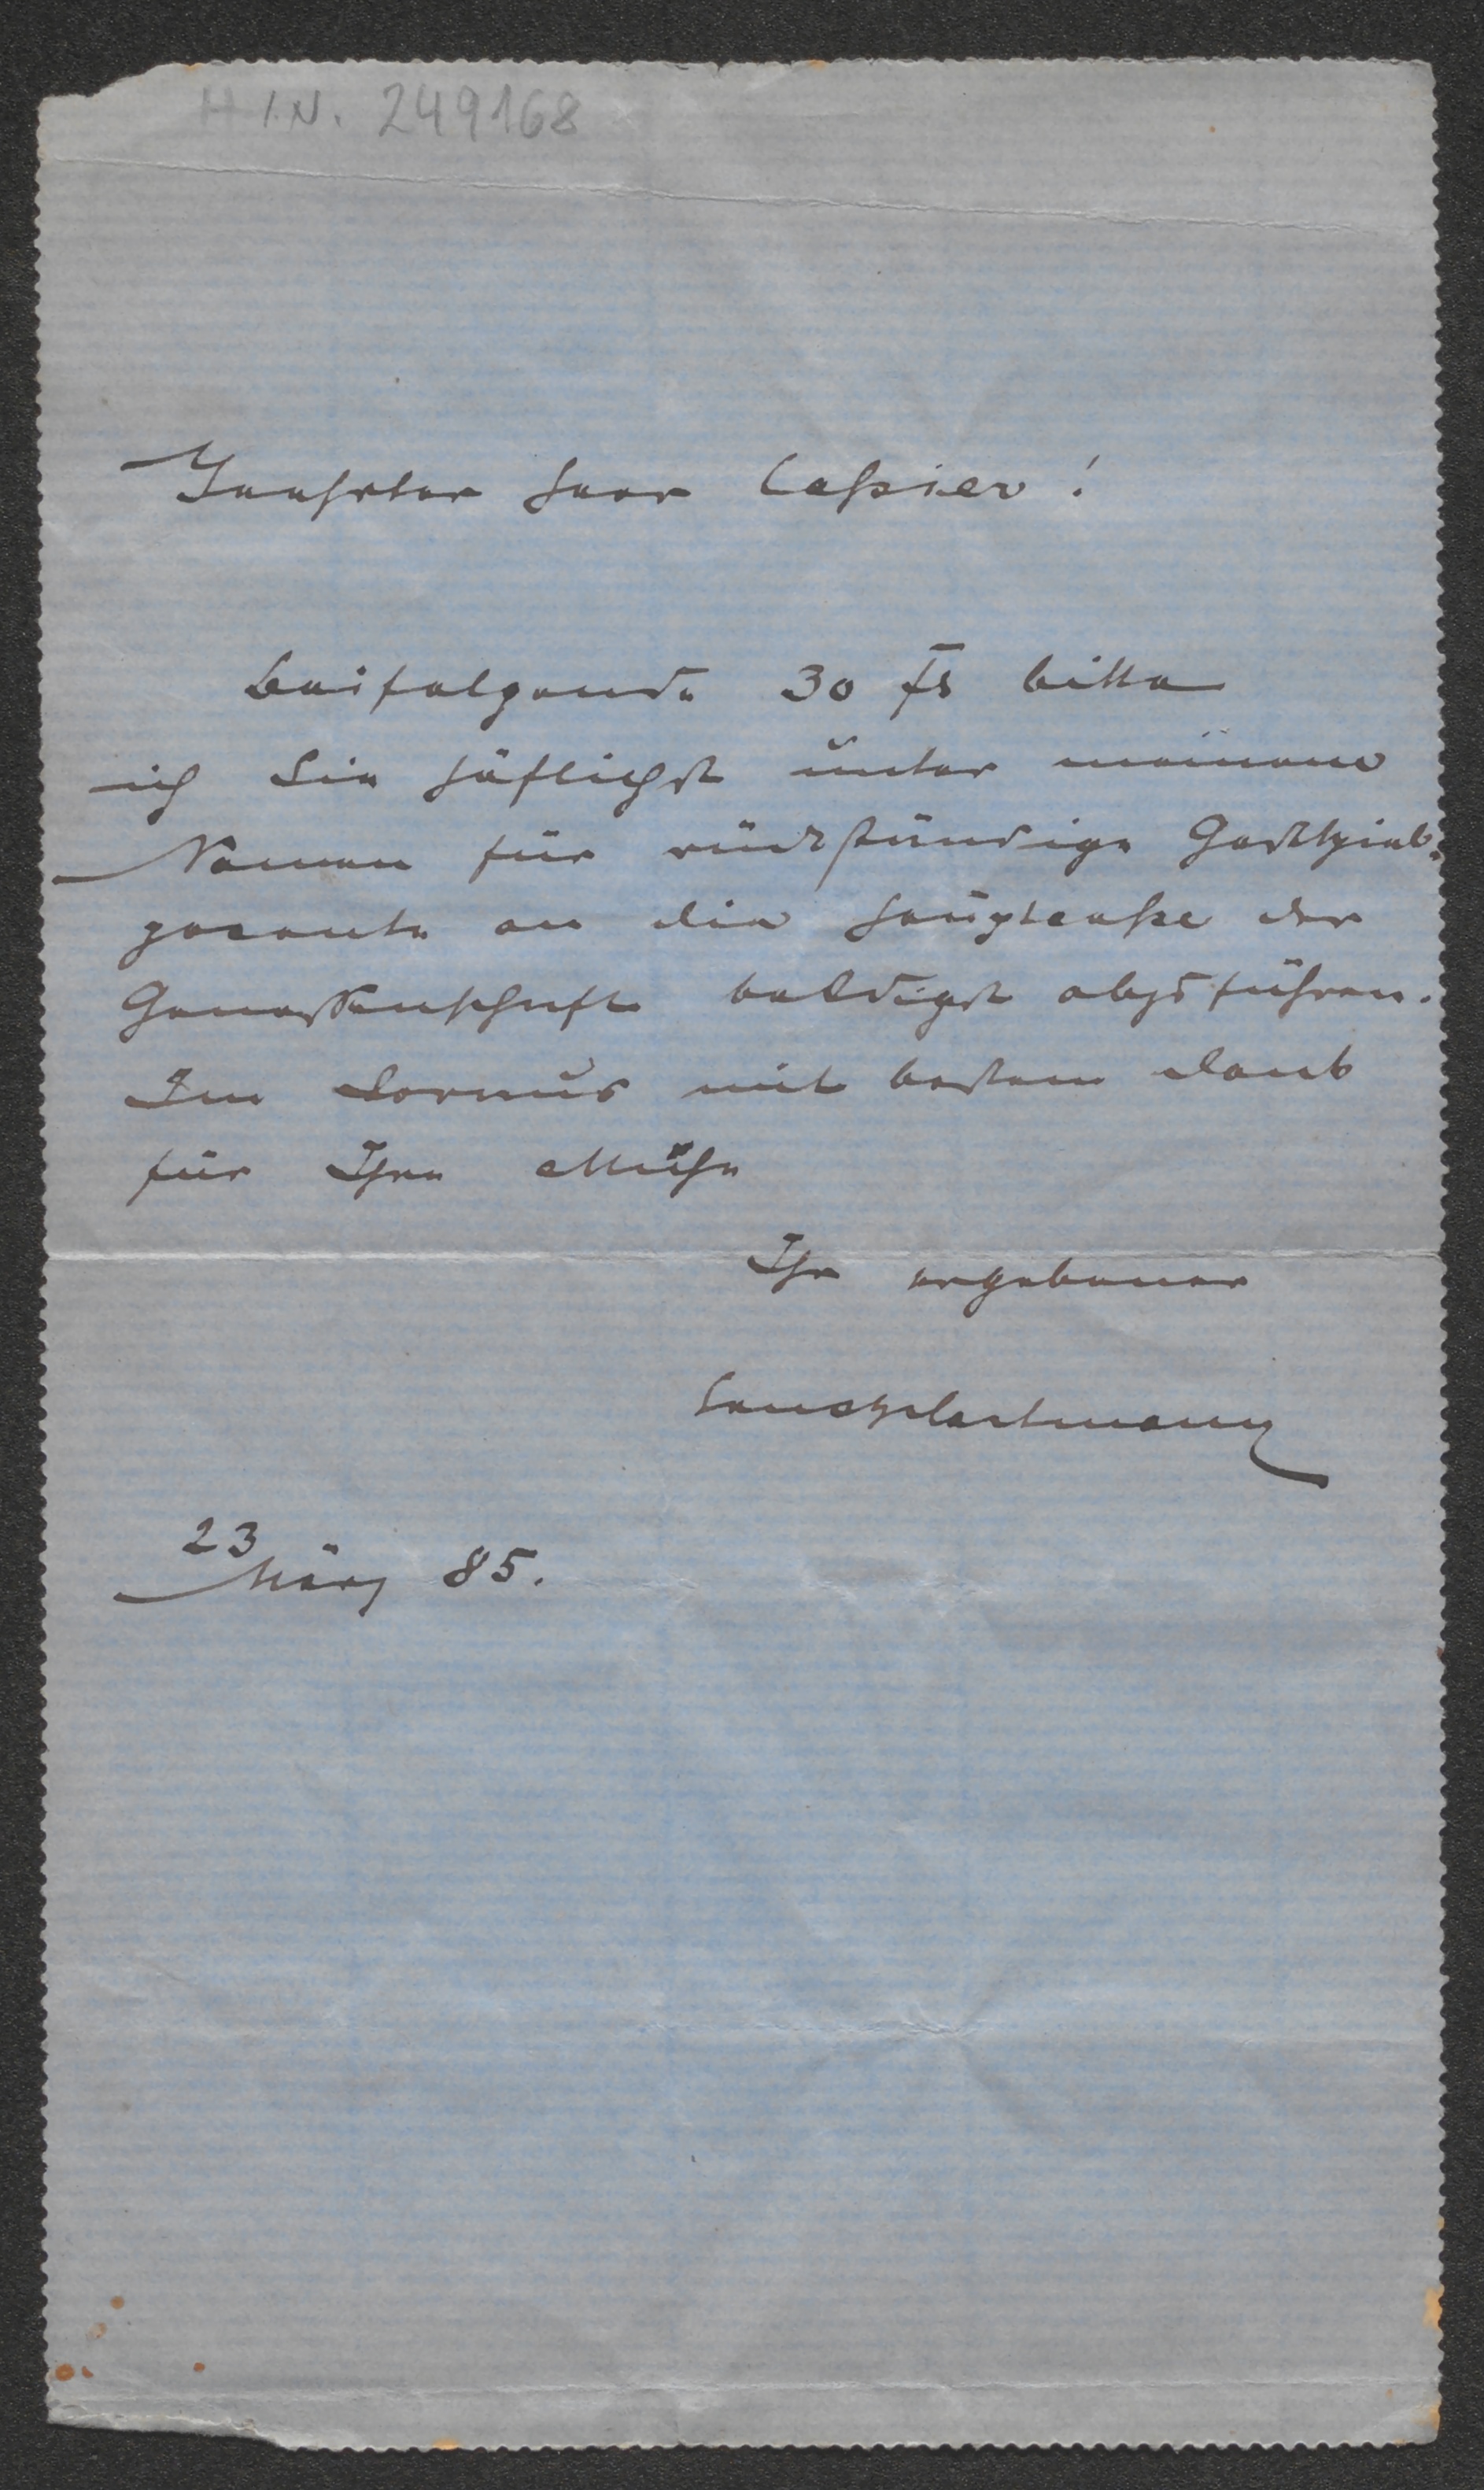 H I.N. 249168
Geehrter Herr Cassier!
Beifolgende 30 fl bitte
ich Sie höflichst unter meinem
Namen für rückständige Gastspiel-
procente an die Hauptcasse der
Genossenschaft baldigst abzuführen.
Im Voraus mit bestem Dank
für Ihre Mühe
Ihr ergebener
23
März 85.